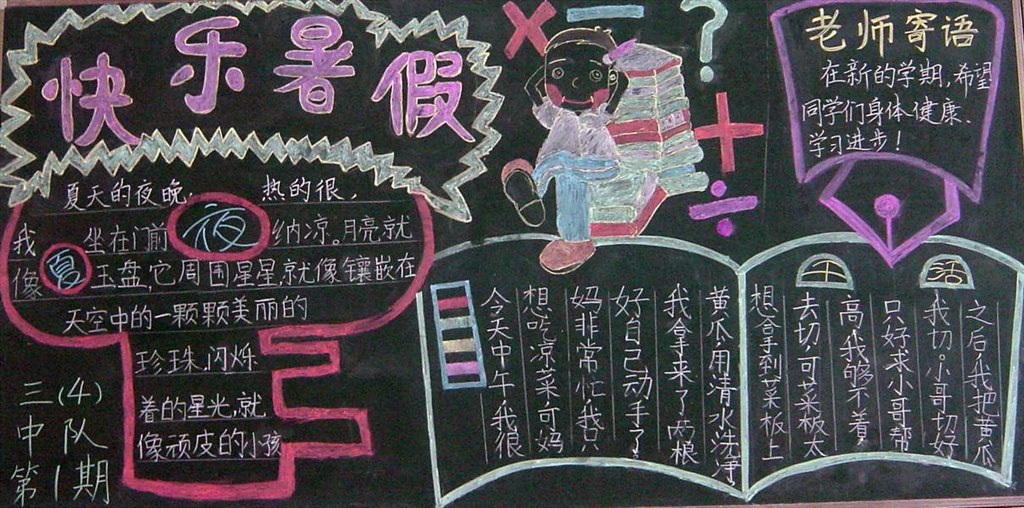 快乐暑假
老师寄语
在新的学期,希望
同学们身体健康、
学习进步!
夏夜
夏天的夜晚,热的很,
我坐在门前纳凉。月亮就
像玉盘,它周围星星,就像镶嵌在
天空中的一颗颗美丽的
珍珠,闪烁
着的星光,就
像顽皮的小孩
三(4)
中队
第1期
干活
今天中午,我很
想吃凉菜,可妈
妈非常忙,我只
好自己动手了。
我拿来了两根
黄瓜,用清水洗净,
想拿到菜板上
去切,可菜板太
高,我够不着,
只好求小哥帮
我切。小哥切好
之后,我把黄瓜